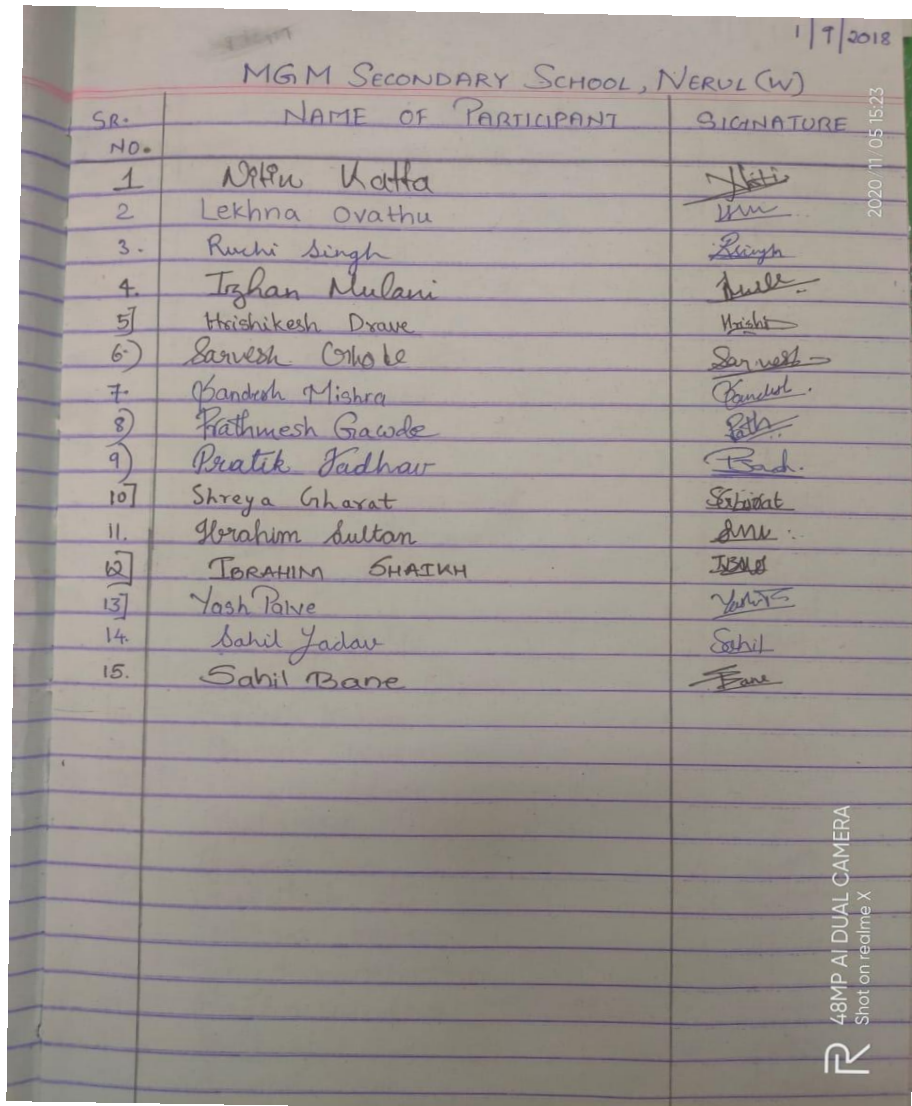 1/9/2018
MGM SECONDARY SCHOOL, NERUL (W)
SR. NO. NAME OF PARTICIPANT SIGNATURE
1 Nitin Katta
2 Lekhna Ovathu
3. Ruchi Singh Rsingh
4. Izhan Mulani
5] Hrishikesh Drave Hrishi
6.) Sarvesh Ghobe Sarvesh
7. Sandesh Mishra Sandesh.
8) Prathmesh Gawde
9) Pratik Jadhav
10] Shreya Gharat
11. Ibrahim Sultan
12] IBRAHIM SHAIKH
13] Yash Palve
14. Sahil Yadav Sahil
15. Sahil Bane Bane
2020/11/05 15:23
48MP AI DUAL CAMERA
Shot on realme X